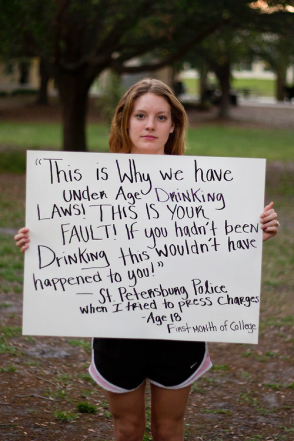 "This is Why we have
under Age Drinking
LAWS! THIS IS YOUR
FAULT! If you hadn't been
Drinking this wouldn't have
happened to you!"
— St. Petersburg Police
when I tried to press charges
-Age 18
First month of College